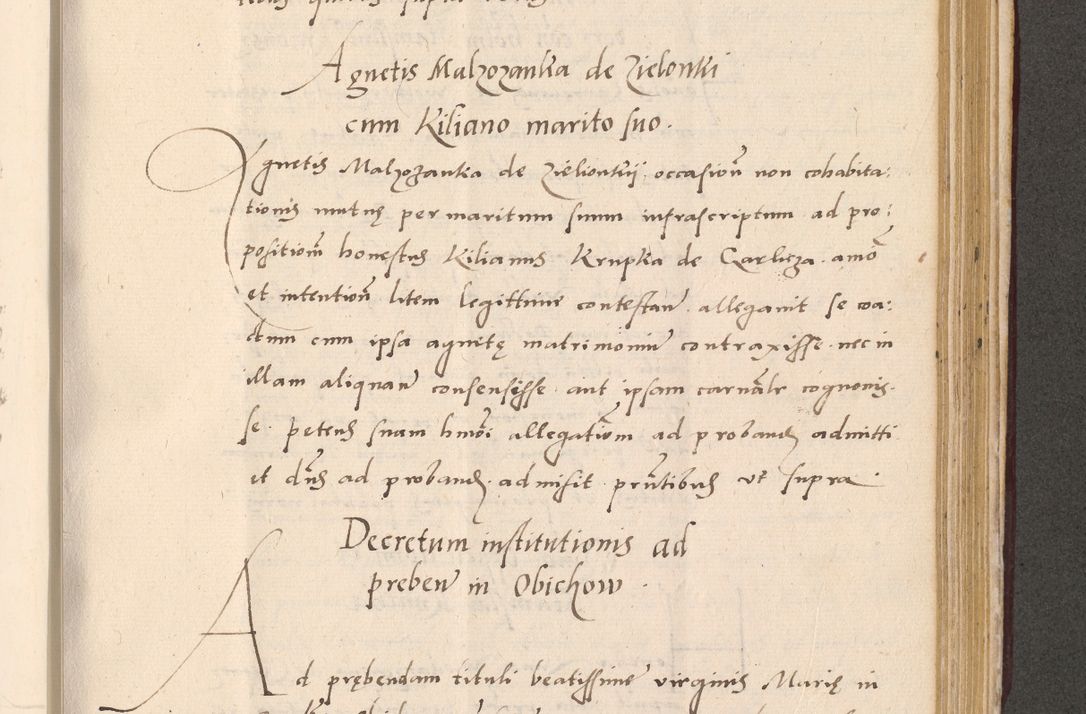 Agnetis Malzozanka de Zielonki
cum Kiliano marito suo.
Agnetis Malzozanka de Zielionkij occasion̄ non cohabita:
tionis mutuę per maritum suum infrascriptum ad pro:
position̄ honestus Kilianus Krupka de Carlicza animo
et intention̄ litem legittime contestan̄ allegauit se coa:
ctum cum ipsa agnetę matrimoniu̅ contraxisse nec in
illam aliquan̄ consensisse aut ipsam carnalr̄ cognouis
se. Petens suam hmōi allegation̄em ad proband̄ admitti
et dn̄s ad proband̄ admisit prn̄tibus vt supra.
Decretum institutionis ad
preben̄ in Obichow.
Ad prębendam tituli beatissime virginis Marię in